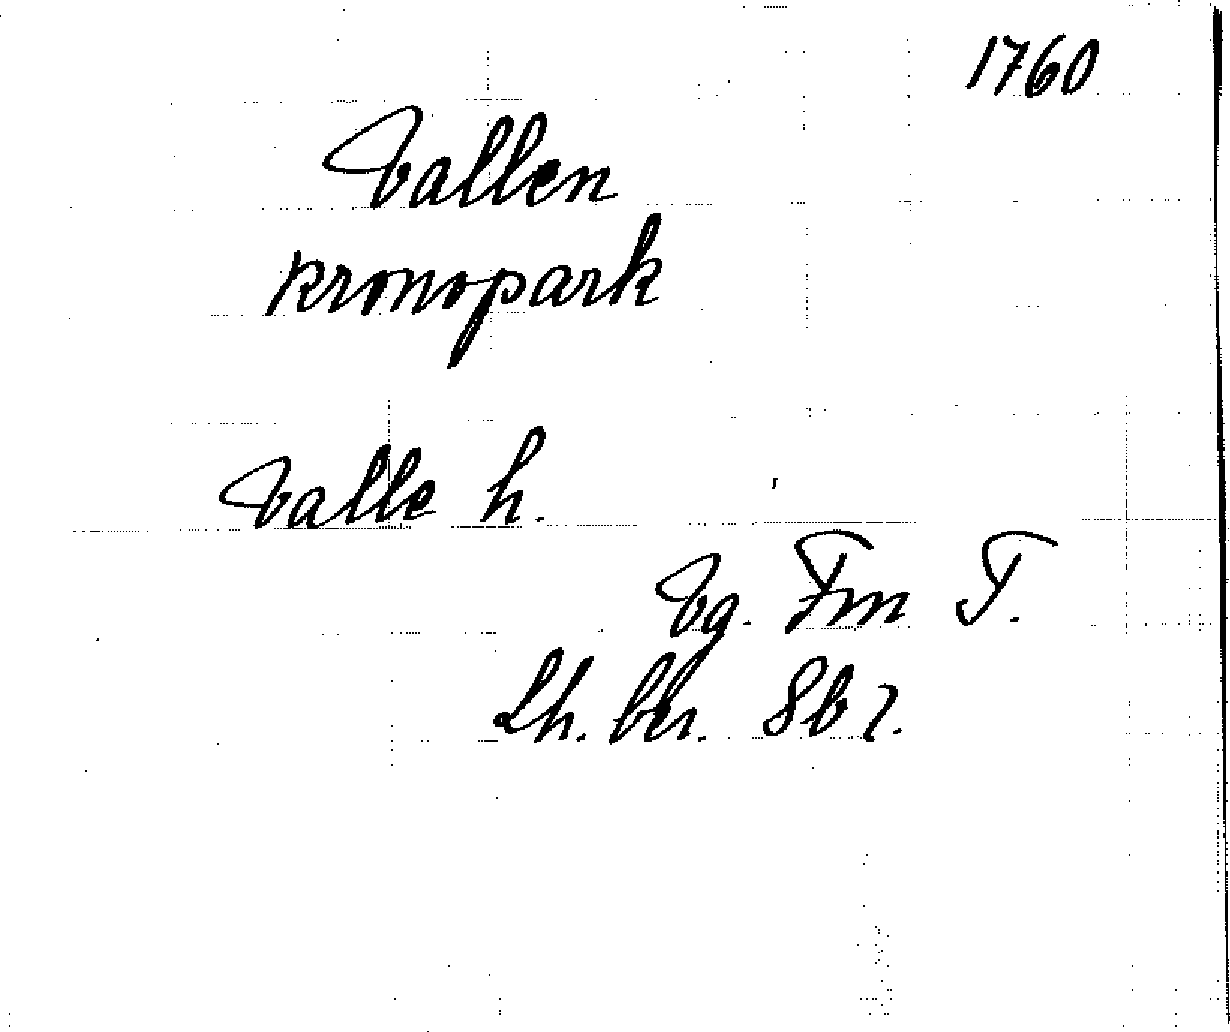 1760
Vallen
kronopark
Valle h.
Vg. Fm T.
Lh. bla. 8b 2.